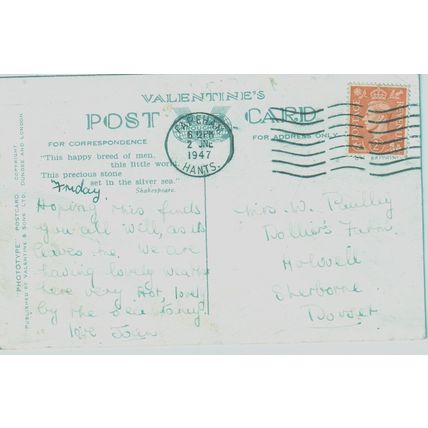 VALENTINE'S
POST CARD
FOR CORRESPONDENCE
FOR ADDRESS ONLY
"This happy breed of men,
this little world,
This precious stone
set in the silver sea."
Shakespeare.
"PHOTOTYPE" POSTCARD. COPYRIGHT
PUBLISHED BY VALENTINE & SONS LTD. DUNDEE AND LONDON
FAREHAM
2 JNE
1947
HANTS.
Friday.
Hoping this finds
you all well, as it
leaves me. We are
having lovely
here very hot, lovely
by the sea
love
Mrs. W.
Dollier's Farm.
Holwell
Sherborne
Dorset